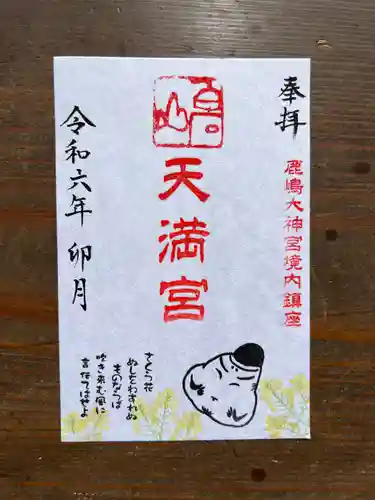 奉拝
鹿嶋大神宮境内鎮座
天満宮
令和六年 卯月
さくら花
ぬしをわすれぬ
ものならば
吹き来む風に
言伝てはせよ